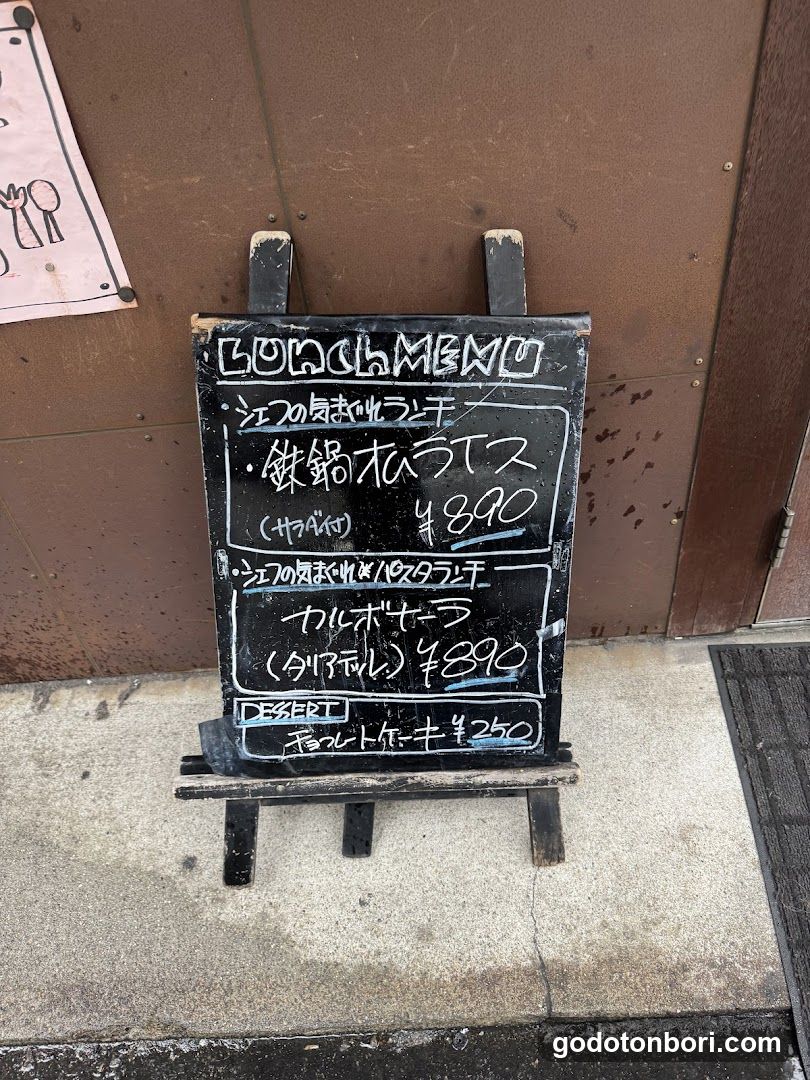 LUNCH MENU
・シェフの気まぐれランチ
・鉄鍋オムライス
(サラダ付) ¥890
・シェフの気まぐれ※パスタランチ
カルボナーラ
(タリアテッレ) ¥890
DESSERT
チョコレートケーキ ¥250
godotonbori.com